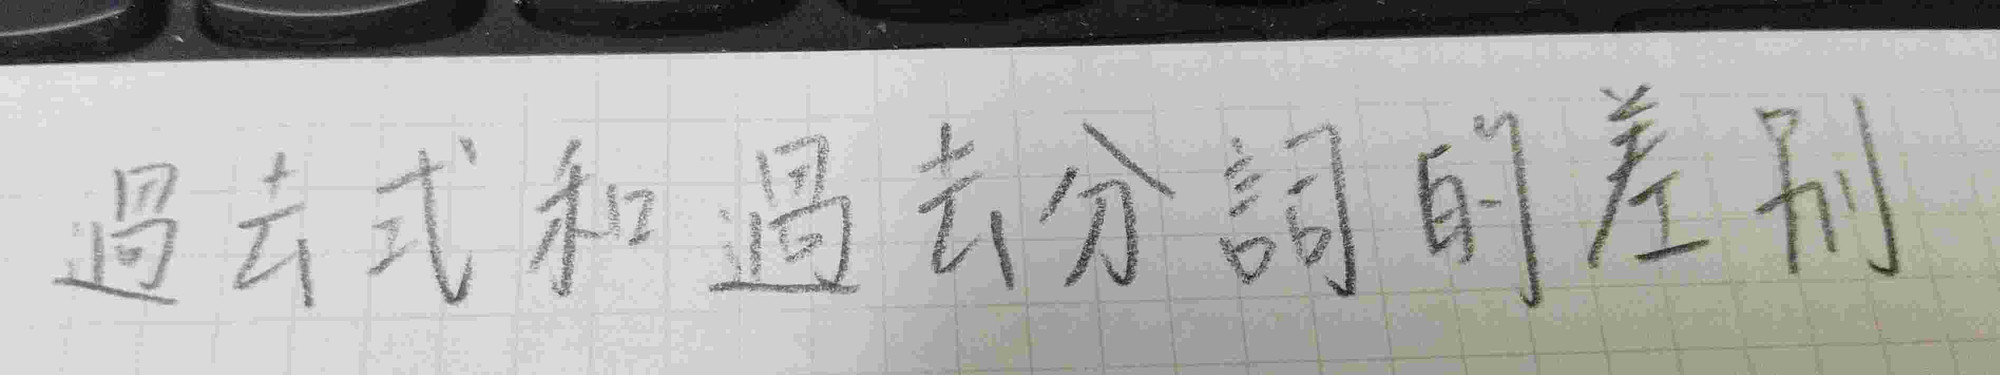 過去式和過去分詞的差別